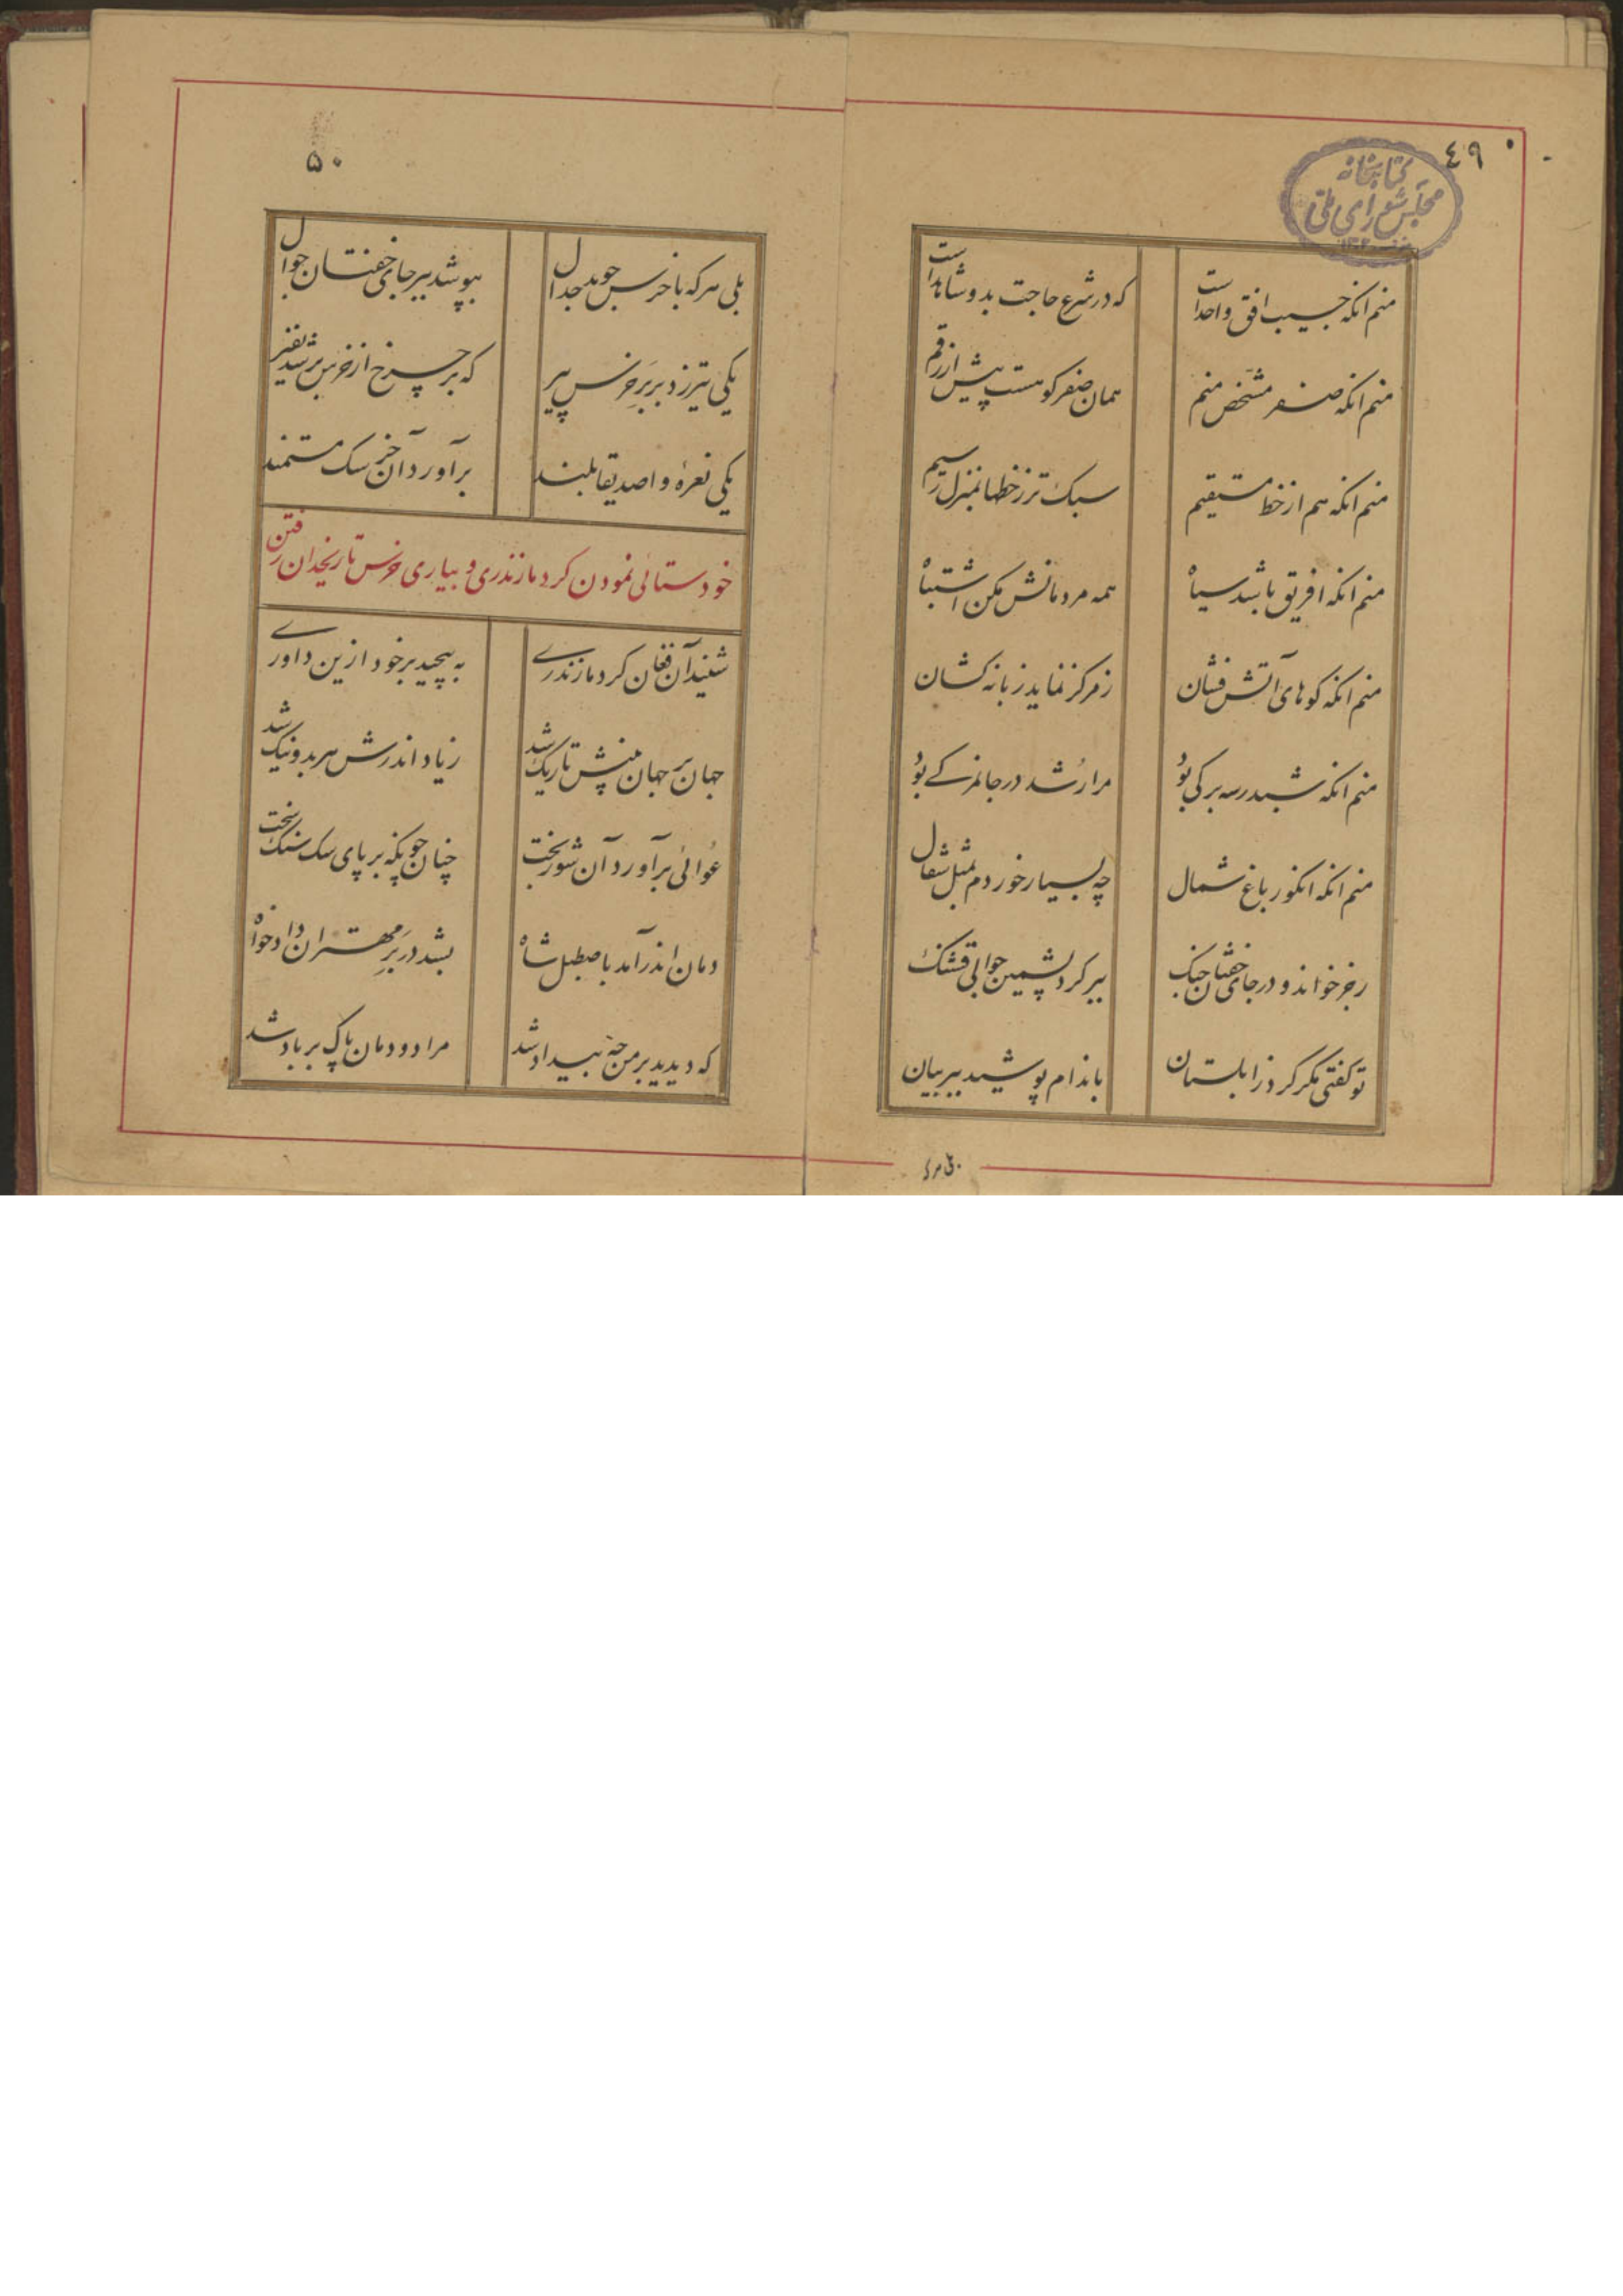 ٤٩
کتابخانه
مجلس شورای ملی
منم آنکه جیب افق واحد است
که در شرع حاجت بدو شاهد است
منم آنکه صفر مشخص منم
همان صفر کو هست پیش از رقم
منم آنکه هم از خط مستقیم
سبک تر ز خطها بمنزل رسیم
منم آنکه افریق باشد سیاه
همه مردمانش مکن اشتباه
منم آنکه کوهای آتش فشان
ز مرکز نماید زبانه کشان
منم آنکه شبدر سه برکی بود
مرا رشد در جانمرکے بود
منم آنکه انکور باغ شمال
چه بسیار خوردم بمثل شغال
رجز خواند و در جای خفتان جنک
ببر کرد پشمین جوالی قشنک
تو کفتی مکر کرد زابلستان
باندام پوشید ببر بیان
۵۰
بلی هر که با خرس جوید جدال
بپوشد ببر جای خفتان جوال
یکی تیز زد بر بر خرس پیر
که بر چرخ از خرس بر شد نفیر
یکی نعرهٔ واصدیقا بلند
برآورد آن خرسک مستمند
خودستائی نمودن کرد مازندری و بیاری خرس تا ریخدان رفتن
شنید آن فغان کرد مازندرے
به پیچید بر خود ازین داورے
جهان بر جهان بینش تاریک شد
زیاد اندرش هر بد و نیک شد
عوائی برآورد آن شور بخت
چنان چونکه بر پای سک سنک سخت
دمان اندر آمد باصطبل شاه
بشد در بر مهتران دادخواه
که دیدید بر من چه بیداد شد
مرا دودمان پاک بر باد شد